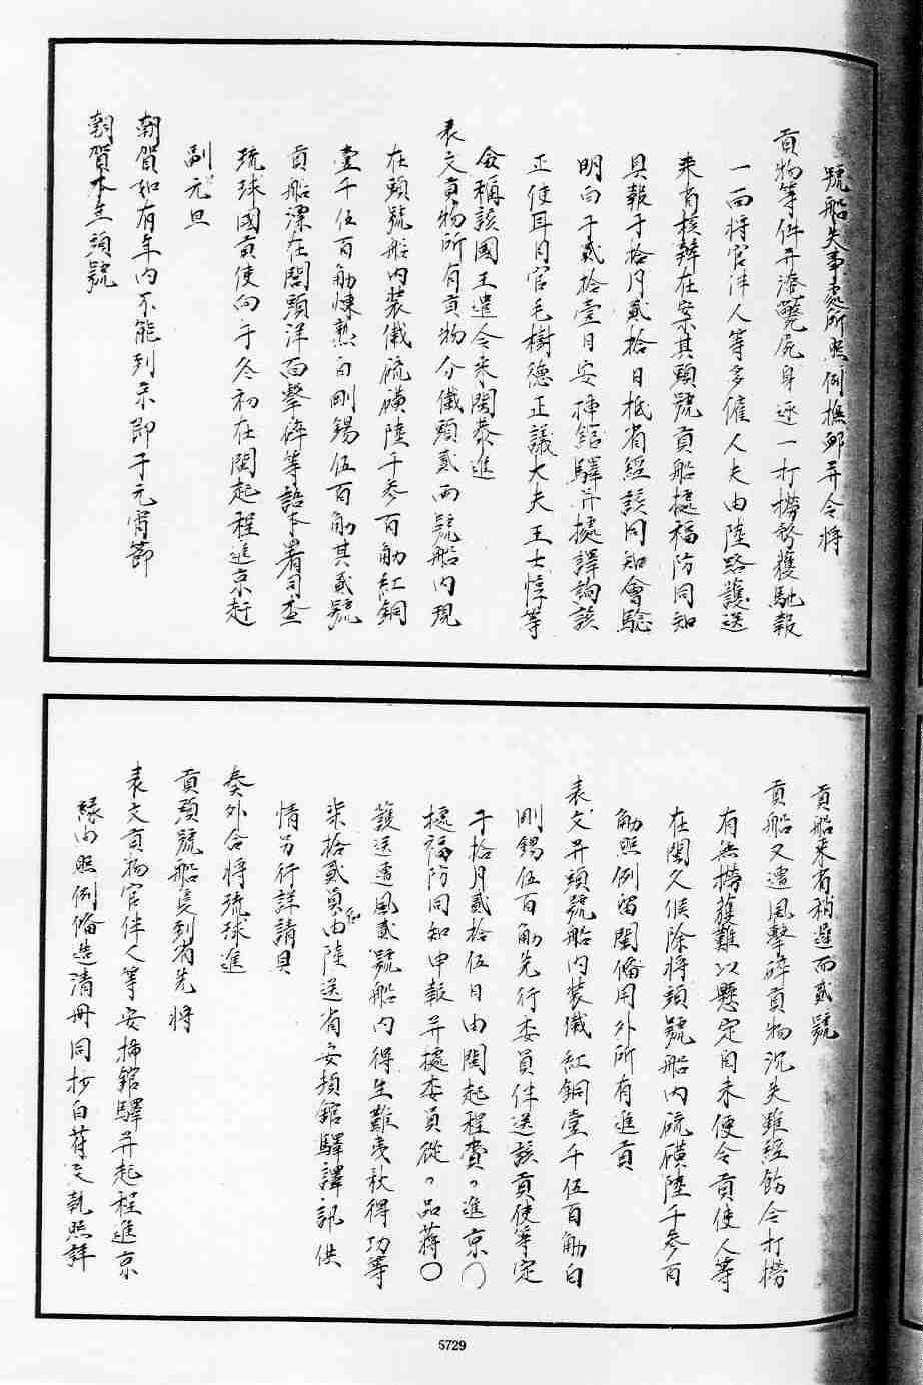 號船失事處所照例撫卹并令將
貢物等件并淹斃屍身逐一打撈務獲馳報
一面將官伴人等多僱人夫由陸路護送
來省核辦在案其頭號貢船據福防同知
具報于拾月貳拾日抵省經該同知會驗
明白于貳拾壹日安插館驛并據譯詢該
正使耳目官毛樹德正議大夫王士惇等
僉稱該國王遣令來閩恭進
表文貢物所有貢物分儎頭貳兩號船內現
在頭號船內裝儎硫磺陸千參百觔紅銅
壹千伍百觔煉熟白剛錫伍百觔其貳號
貢船漂在閩頭洋面擊碎等語本署司查
琉球國貢使向于冬初在閩起程進京赶
副元旦
朝賀如有年內不能到京即于元宵節
朝賀本年頭號
貢船來省稍遲而貳號
貢船又遭風擊碎貢物沉失雖經飭令打撈
有無撈獲難以懸定自未便令貢使人等
在閩久候除將頭號船內硫磺陸千參百
觔照例留閩備用外所有進貢
表文并頭號船內裝儎紅銅壹千伍百觔白
剛錫伍百觔先行委員伴送該貢使等定
于拾月貳拾伍日由閩起程賫〃進京〇
據福防同知申報并據委員從〃品蔣〇
護送遭風貳號船內得生難夷秋得功等
柒拾貳員名由陸送省安插館驛譯訊供
情另行詳請具
奏外合將琉球進
貢頭號船隻到省先將
表文貢物官伴人等安插館驛并起程進京
緣由照例備造清冊同抄白符文執照詳
5729